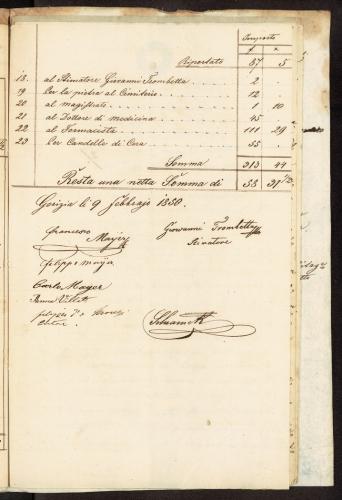 Importo
f x
Riportato 87 5
18. al Stimatore Giovanni Trombetta 2 .
19 Per la pietra al Cimiterio 12
20 al magistrato 1 10
21 al Dottore di medicina 45
22 al Farmacista 111 29
23 Per Candelle di Cera 55 .
Somma 313 44
Resta una netta Somma di 58 37
Gorizia li 9 febbrajo 1850.
Francesco Mayer
Giovanni Trombetta
Stimatore
Filippo Mayer
Carlo Mayer